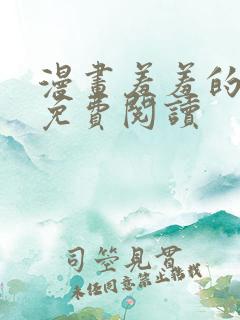 漫畫羞羞的
免費閱讀
司空見貫
未经同意禁止轉載